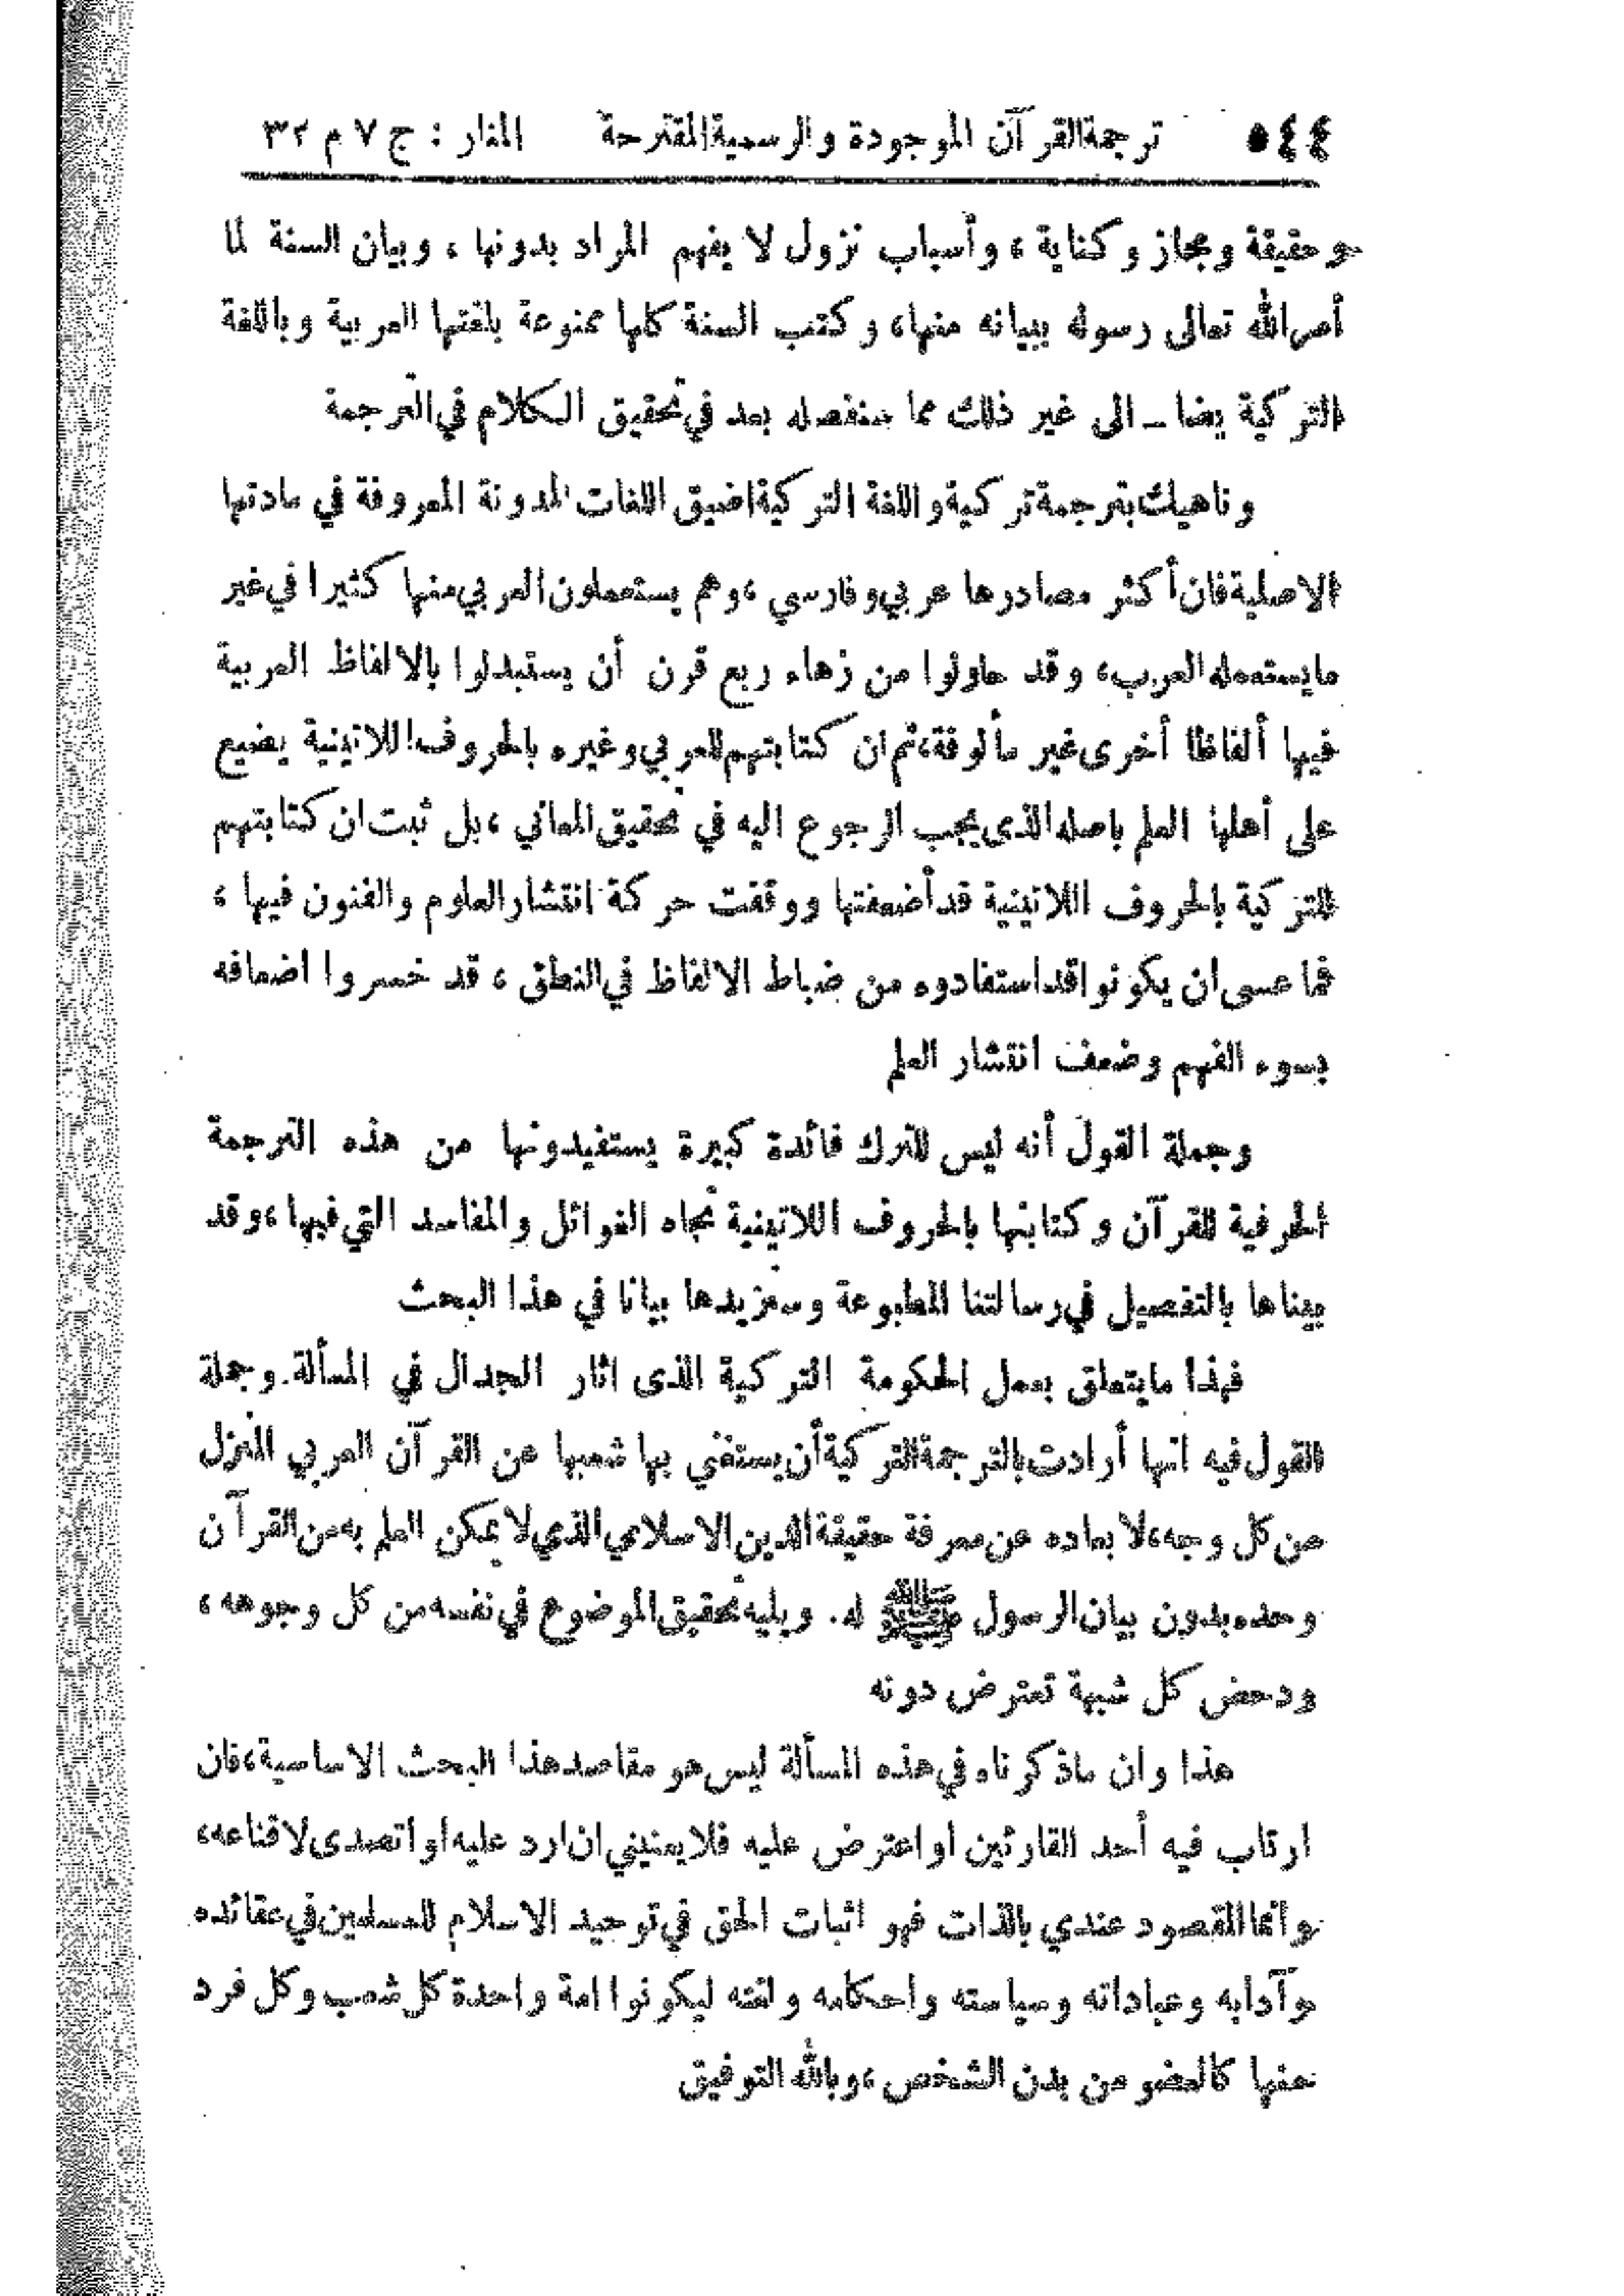 ٥٤٤ ترجمة القرآن الموجودة والرسمية المقترحة المنار : ج ٧ م ٣٢
وحقيقة ومجاز وكناية ، وأسباب نزول لا يفهم المراد بدونها ، وبيان السنة لما
أمر الله تعالى رسوله ببيانه منها ، وكتب السنة كلها ممنوعة بلغتها العربية وباللغة
التركية يضا ــ الى غير ذلك مما سنفصله بعد في تحقيق الكلام في الترجمة
وناهيك بترجمة تركية واللغة التركية اضيق اللغات المدونة المعروفة في مادتها
الاصلية فان أكثر مصادرها عربي وفارسي ، وهم يستعملون العربي منها كثيرا في غير
ما يستعمله العرب ، وقد حاولوا من زهاء ربع قرن أن يستبدلوا بالالفاظ العربية
فيها ألفاظا أخرى غير مألوفة ، ثم ان كتابتهم للعربي وغيره بالحروف اللاتينية يضيع
على أهلها العلم باصله الذى يجب الرجوع اليه في تحقيق المعاني ، بل ثبت ان كتابتهم
للتركية بالحروف اللاتينية قد أضعفتها ووقفت حركة انتشار العلوم والفنون فيها ،
فما عسى ان يكونوا قد استفادوه من ضباط الالفاظ في النطق ، قد خسروا اضعافه
بسوء الفهم وضعف انتشار العلم
وجملة القول أنه ليس للترك فائدة كبيرة يستفيدونها من هذه الترجمة
الحرفية للقرآن وكتابتها بالحروف اللاتينية تجاه الغوائل والمفاسد التي فيها ، وقد
بيناها بالتفصيل في رسالتنا المطبوعة وسنزيدها بيانا في هذا البحث
فهذا ما يتعلق بعمل الحكومة التركية الذى اثار الجدال في المسألة. وجملة
القول فيه انها أرادت بالترجمة التركية أن يستغني بها شعبها عن القرآن العربي المنزل
من كل وجه ، لا بعاده عن معرفة حقيقة الدين الاسلامي الذي لا يمكن العلم به من القرآن
وحده بدون بيان الرسول ﷺ له. ويليه تحقيق الموضوع في نفسه من كل وجوهه ،
ودحض كل شبهة تعترض دونه
هذا وان ماذكرناه في هذه المسألة ليس هو مقاصد هذا البحث الاساسية ، فان
ارتاب فيه أحد القارئين او اعترض عليه فلا يعنيني ان ارد عليه او اتصدى لاقناعه ،
وانما المقصود عندي بالذات فهو اثبات الحق في توحيد الاسلام للمسلمين في عقائده
وآدابه وعباداته وسياسته واحكامه ولغته ليكونوا امة واحدة كل شعب وكل فرد
منها كالعضو من بدن الشخص ، وبالله التوفيق